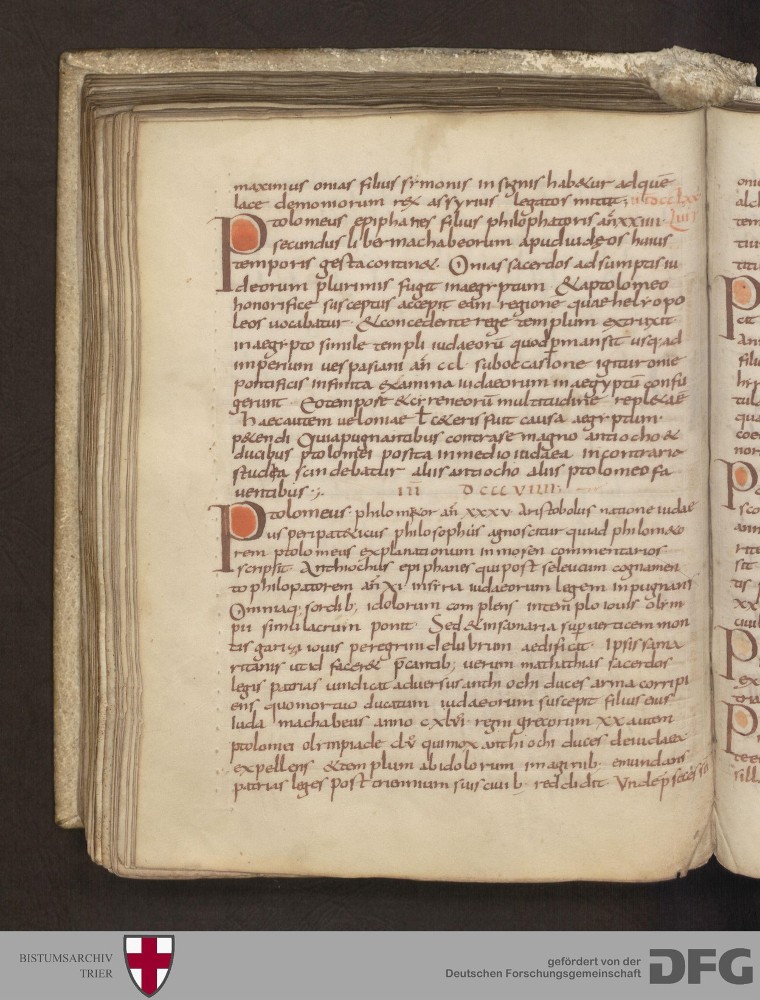 maximus onias filius symonis insignis habetur adquē
lace demoniorum rex assyrius legatos mittit
Ptolomeus epiphanes filius philophatoris añ xxiiii
secundus liber machabeorum apud iudeos huius
temporis gesta continet. Onias sacerdos adsumptis iu
deorum plurimis fugit inaegyptum Et aptolomeo
honorifice susceptus accepit eam regionē quae helyopo
leos vocabatur. Et concedente rege templum extruxit
in aegypto simile templi iudaeorū quod pmansit usq; ad
imperium vespasiani añ ccl sub occasione igitur onie
pontificis infinita examina iudaeorum in aegyptū confu
gerunt Eo tempore et cyreneorū multitudine repletae
haec autem veloniae ł ceteris fuit causa aegyptum
petendi Quia pugnantibus contra se magno antiocho et
ducibus ptolomei posita in medio iudaea in contrario
studia scindebatur aliis antiocho aliis ptolomeo fa
ventibus
III DCCCVIIII
Ptolomeus philometor añ xxxv Aristobolus natione iudae
us peripateticus philosophus agnoscitur qui ad philometo
rem ptolomeus explanationum in mosen commentarios
scripsit. Anthiochus epiphanes qui post seleucum cognomen
to philopatorem añ xi in syria iudaeorum legem inpugnans
Omniaq; sordib; idolorum complens in templo iovis olym
pii simulacrum ponit Sed et in samaria sup verticem mon
tis garizi iovis peregrini delubrum aedificat Ipsis sama
ritanis ut id faceret pcantib; verum mathathias sacerdos
legis patrias vindicat adversus anthiochi duces arma corripi
ens quo mortuo ducatum iudaeorum suscepit filius eius
iuda machabeus anno cxlvi regni grecorum xx autem
ptolomei olympiade clv qui mox anthiochi duces de iudaea
expellens et templum ab idolorum imaginib; emundans
patrias leges post triennium suis civib; reddidit Unde p
BISTUMSARCHIV
TRIER
gefördert von der
Deutschen Forschungsgemeinschaft
DFG